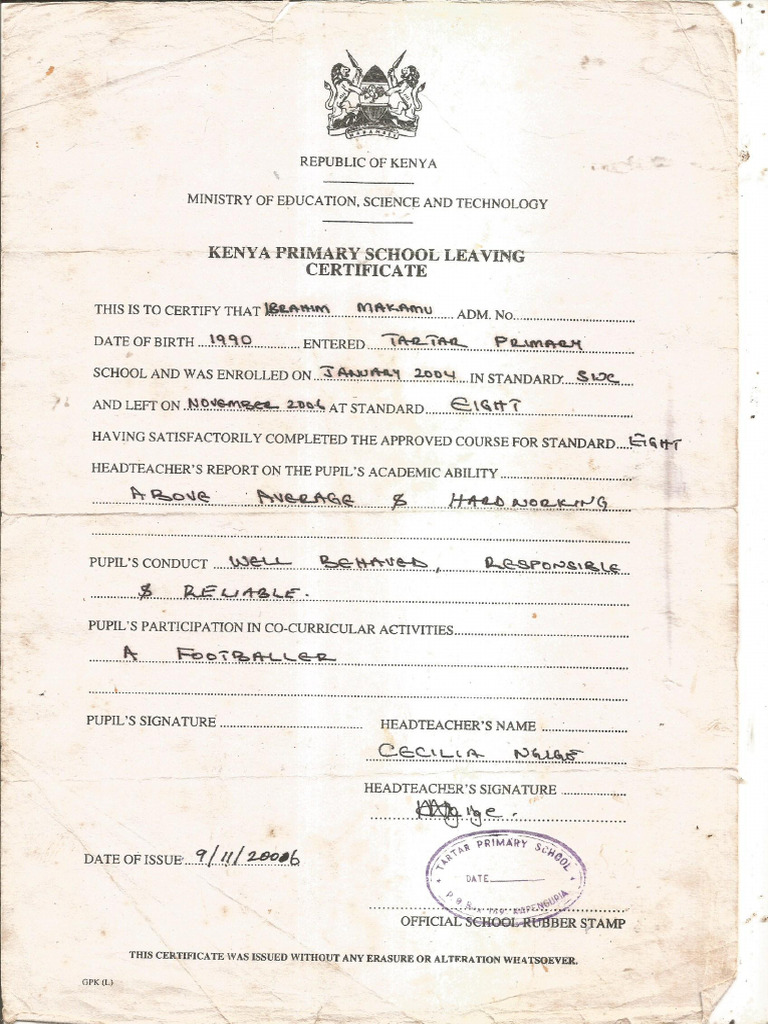 HARAMBEE
REPUBLIC OF KENYA
MINISTRY OF EDUCATION, SCIENCE AND TECHNOLOGY
KENYA PRIMARY SCHOOL LEAVING
CERTIFICATE
THIS IS TO CERTIFY THAT IBRAHIM MAKAMU ADM. No.
DATE OF BIRTH 1990 ENTERED TARTAR PRIMARY
SCHOOL AND WAS ENROLLED ON JANUARY 2004 IN STANDARD SIX
AND LEFT ON NOVEMBER 2006 AT STANDARD EIGHT
HAVING SATISFACTORILY COMPLETED THE APPROVED COURSE FOR STANDARD EIGHT
HEADTEACHER'S REPORT ON THE PUPIL'S ACADEMIC ABILITY
ABOVE AVERAGE & HARDWORKING
PUPIL'S CONDUCT WELL BEHAVED, RESPONSIBLE
& RELIABLE.
PUPIL'S PARTICIPATION IN CO-CURRICULAR ACTIVITIES
A FOOTBALLER
PUPIL'S SIGNATURE HEADTEACHER'S NAME
CECILIA NGIGE
HEADTEACHER'S SIGNATURE
DATE OF ISSUE 9/11/2006
TARTAR PRIMARY SCHOOL
DATE
KAPENGURIA
OFFICIAL SCHOOL RUBBER STAMP
THIS CERTIFICATE WAS ISSUED WITHOUT ANY ERASURE OR ALTERATION WHATSOEVER.
GPK (L)